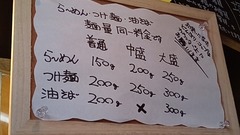 らーめん・つけ麺・油そば
麺量 同一料金です
普通 中盛 大盛
らーめん 150g 200g 250g
つけ麺 200g 250g 300g
油そば 200g × 300g